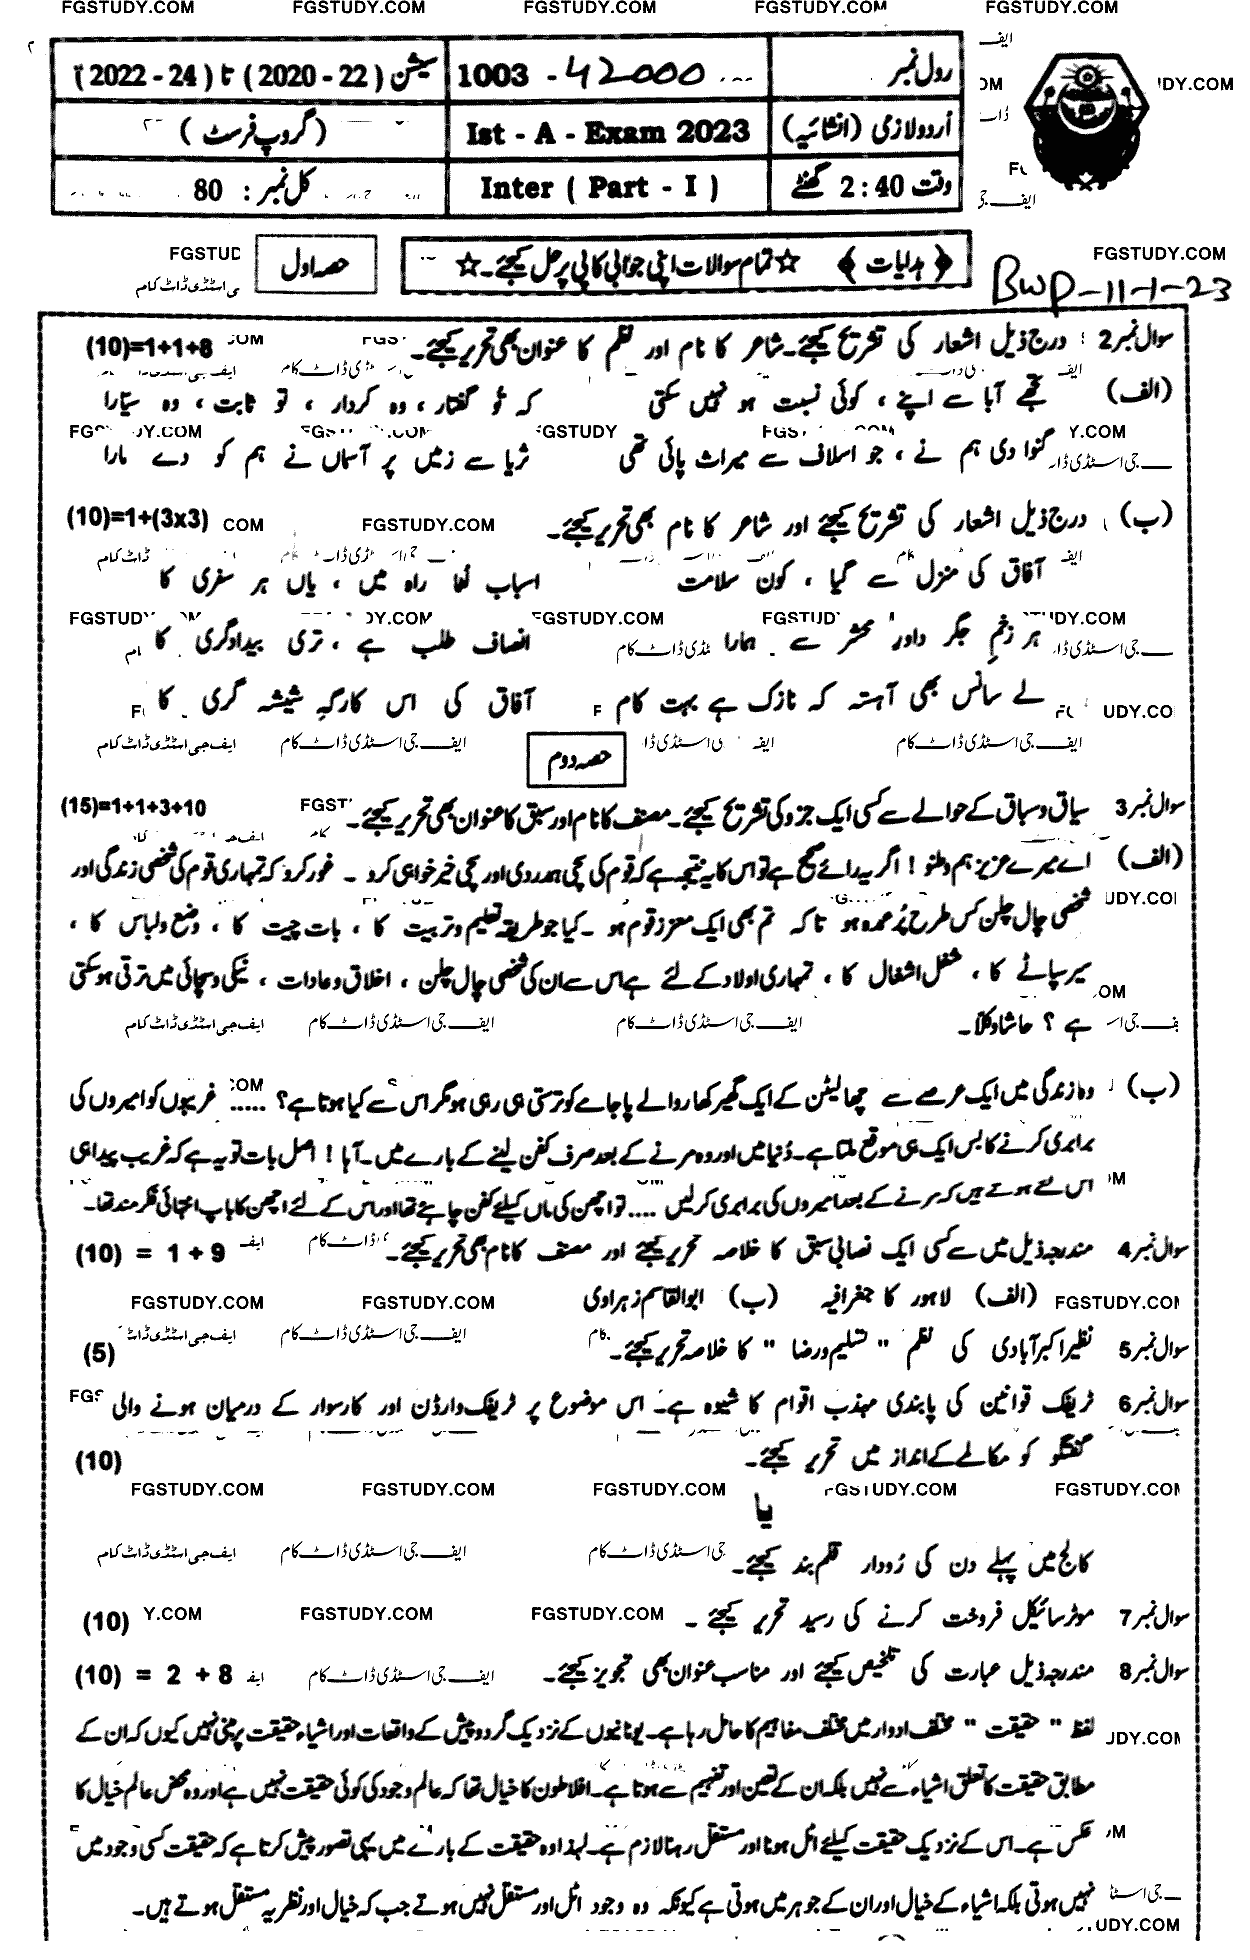 FGSTUDY.COM FGSTUDY.COM FGSTUDY.COM FGSTUDY.COM FGSTUDY.COM
رول نمبر 1003 - 42000 سیشن (2020 - 22) تا (2022 - 24)
اُردو لازمی (انشائیہ) Ist - A - Exam 2023 (گروپ فرسٹ)
وقت 2:40 گھنٹے Inter ( Part - I ) کل نمبر : 80
﴿ ہدایات ﴾ ☆ تمام سوالات اپنی جوابی کاپی پر حل کیجئے۔ ☆ حصہ اول
BWP-11-1-23
سوال نمبر 2 درج ذیل اشعار کی تشریح کیجئے۔ شاعر کا نام اور نظم کا عنوان بھی تحریر کیجئے۔ (10)=1+1+8
(الف) تجھے آبا سے اپنے ، کوئی نسبت ہو نہیں سکتی کہ تُو گفتار ، وہ کردار ، تو ثابت ، وہ سیّارا
گنوا دی ہم نے ، جو اسلاف سے میراث پائی تھی ثریا سے زمیں پر آسماں نے ہم کو دے مارا
(ب) درج ذیل اشعار کی تشریح کیجئے اور شاعر کا نام بھی تحریر کیجئے۔ (10)=1+(3x3)
آفاق کی منزل سے گیا ، کون سلامت اسباب لُٹا راہ میں ، یاں ہر سفری کا
ہر زخمِ جگر داورِ محشر سے ہمارا انصاف طلب ہے ، تری بیدادگری کا
لے سانس بھی آہستہ کہ نازک ہے بہت کام آفاق کی اس کارگہِ شیشہ گری کا
حصہ دوم
سوال نمبر 3 سیاق و سباق کے حوالے سے کسی ایک جزو کی تشریح کیجئے۔ مصنف کا نام اور سبق کا عنوان بھی تحریر کیجئے۔ (15)=1+1+3+10
(الف) اے میرے عزیز ہم وطنو ! اگر یہ رائے صحیح ہے تو اس کا یہ نتیجہ ہے کہ قوم کی سچی ہمدردی اور سچی خیر خواہی کرو ۔ غور کرو کہ تمہاری قوم کی شخصی زندگی اور
شخصی چال چلن کس طرح پر عمدہ ہو تاکہ تم بھی ایک معزز قوم ہو ۔ کیا جو طریقہ تعلیم و تربیت کا ، بات چیت کا ، وضع و لباس کا ،
سیر سپاٹے کا ، شغل اشغال کا ، تمہاری اولاد کے لئے ہے اس سے ان کی شخصی چال چلن ، اخلاق و عادات ، نیکی و سچائی میں ترقی ہو سکتی
ہے ؟ حاشا و کلّا۔
(ب) وہ زندگی میں ایک عرصے سے چھالیٹن کے ایک گھیر کھاروالے پاجامے کو ترستی ہی رہی ہو مگر اس سے کیا ہوتا ہے؟ ..... غریبوں کو امیروں کی
برابری کرنے کا بس ایک ہی موقع ملتا ہے۔ دُنیا میں اور وہ مرنے کے بعد صرف کفن لینے کے بارے میں۔ آہا ! اصل بات تو یہ ہے کہ غریب پیدا ہی
اس لئے ہوتے ہیں کہ مرنے کے بعد امیروں کی برابری کر لیں .... تو اچھن کی ماں کیلئے کفن چاہئے تھا اور اس کے لئے اچھن کا باپ انتہائی فکر مند تھا۔
سوال نمبر 4 مندرجہ ذیل میں سے کسی ایک نصابی سبق کا خلاصہ تحریر کیجئے اور مصنف کا نام بھی تحریر کیجئے۔ (10) = 1 + 9
(الف) لاہور کا جغرافیہ (ب) ابوالقاسم زہراوی
سوال نمبر 5 نظیر اکبر آبادی کی نظم " تسلیم و رضا " کا خلاصہ تحریر کیجئے۔ (5)
سوال نمبر 6 ٹریفک قوانین کی پابندی مہذب اقوام کا شیوہ ہے۔ اس موضوع پر ٹریفک وارڈن اور کار سوار کے درمیان ہونے والی
گفتگو کو مکالمے کے انداز میں تحریر کیجئے۔ (10)
FGSTUDY.COM FGSTUDY.COM FGSTUDY.COM FGSTUDY.COM
یا
کالج میں پہلے دن کی رُوداد قلم بند کیجئے۔
سوال نمبر 7 موٹر سائیکل فروخت کرنے کی رسید تحریر کیجئے ۔ (10)
سوال نمبر 8 مندرجہ ذیل عبارت کی تلخیص کیجئے اور مناسب عنوان بھی تجویز کیجئے۔ (10) = 2 + 8
لفظ " حقیقت " مختلف ادوار میں مختلف مفاہیم کا حامل رہا ہے۔ یونانیوں کے نزدیک گرد و پیش کے واقعات اور اشیاء حقیقت پر مبنی نہیں کیوں کہ ان کے
مطابق حقیقت کا تعلق اشیاء سے نہیں بلکہ ان کے تعین اور تفہیم سے ہوتا ہے۔ افلاطون کا خیال تھا کہ عالم وجود کی کوئی حقیقت نہیں ہے اور وہ محض عالم خیال کا
عکس ہے۔ اس کے نزدیک حقیقت کیلئے اٹل ہونا اور مستقل رہنا لازم ہے۔ لہذا وہ حقیقت کے بارے میں یہی تصور پیش کرتا ہے کہ حقیقت کسی وجود میں
نہیں ہوتی بلکہ اشیاء کے خیال اور ان کے جوہر میں ہوتی ہے کیونکہ وہ وجود اٹل اور مستقل نہیں ہوتے جب کہ خیال اور نظریہ مستقل ہوتے ہیں۔